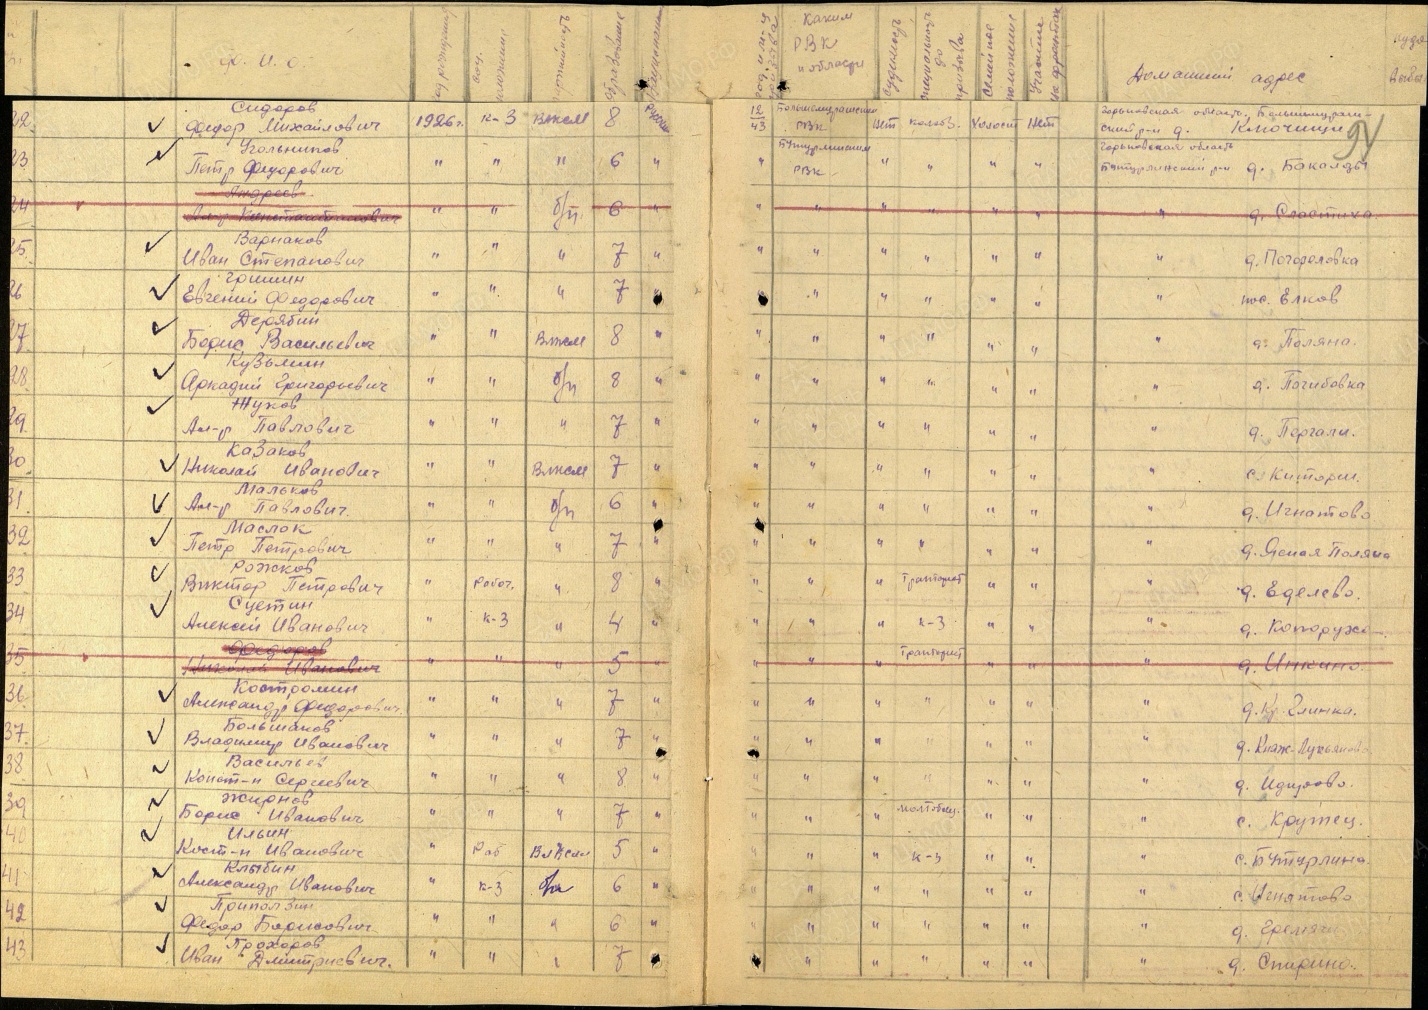 Ф. И. О.
год рождения
соц. положение
партийность
образование
национальность
год и м-ц призыва
каким РВК и области
судимость
специальность до призыва
семейное положение
участие на фронтах
Домашний адрес
22 Сидоров Федор Михайлович 1926 г. к-з ВЛКСМ 8 русский 12/43 РВК нет колхоз. холост нет Горьковская область, д. Ключищи
94
23 Угольников Петр Федорович " " " 6 " " Бутурлинским РВК " " " " Горьковская область Бутурлинский р-н д. Бакалды
24 Андреев Ал-р Константинович " " б/п 6 " " " " " " " " д. Сластиха
25 Варнаков Иван Степанович " " " 7 " " " " " " " " д. Погореловка
26 Гришин Евгений Федорович " " " 7 " " " " " " " пос. Елхов
27 Дерябин Борис Васильевич " " ВЛКСМ 8 " " " " " " " " д. Поляна.
28 Кузьмин Аркадий Григорьевич " " б/п 8 " " " " " " " " д. Погибовка
29 Жуков Ал-р Павлович " " " 7 " " " " " " " " д. Пергали.
30 Казаков Николай Иванович " " ВЛКСМ 7 " " " " " " " "
31. Мальков Ал-р Павлович. " " б/п 6 " " " " " " " " д. Игнатово
32 Маслок Петр Петрович " " " 7 " " " " " " " " д. Ясная Поляна
33 Рожков Виктор Петрович " рабоч. " 8 " " " " тракторист " " " д. Еделево.
34 Суетин Алексей Иванович " к-з " 4 " " " " к-з " " "
35 Федоров Николай Иванович " " " 5 " " " " тракторист " " " д. Инкино.
36 Костромин Александр Федорович " " " 7 " " " " " " " " д. Кр. Глинка.
37. Большаков Владимир Иванович " " " 7 " " " " " " " " д. Княж-Лукьяново
38 Васильев Конст-н Сергеевич " " " 8 " " " " " " " "
39 Жирнов Борис Иванович " " " 7 " " " " " " " с. Кружец.
40 Ильин Конст-н Иванович " Раб ВЛКСМ 5 " " " " к-з " " " с. Бутурлино.
41 Клыбин Александр Иванович " к-з б/п 6 " " " " " " " " с. Игнатово
42 Приползин Федор Борисович " " " 6 " " " " " " " "
43 Прохоров Иван Дмитриевич. " " " 7 " " " " " " " " д. Спирино.